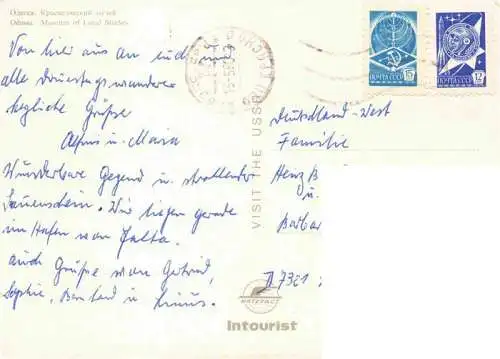 Одесса. Краеведческий музей
Odessa. Museum of Local Studies
Von hier aus an euch und
alle Donnerstagswanderer
herzliche Grüße
Alfons u. Maria
Wunderbare Gegend u. strahlender
Sonnenschein. Wir liegen gerade
im Hafen von Jalta.
auch Grüße von Gertrud,
Sophie, Bernhard u. Linus.
VISIT THE USSR
ПОЧТА СССР
15
ПОЧТА СССР
12
Deutschland-West
Familie
Heinz B
u.
Barbar
D 7321
ИНТУРИСТ
Intourist